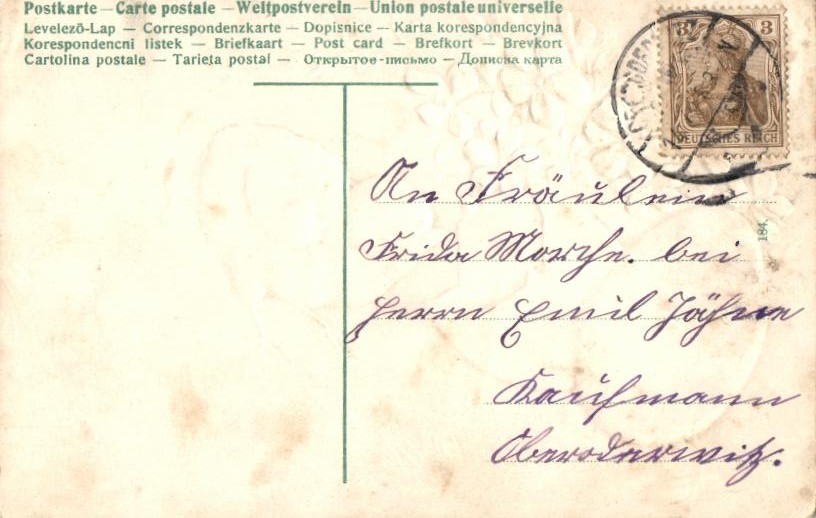 Postkarte — Carte postale — Weltpostverein — Union postale universelle
Levelező-Lap — Correspondenzkarte — Dopisnice — Karta korespondencyjna
Korespondencni listek — Briefkaart — Post card — Brefkort — Brevkort
Cartolina postale — Tarjeta postal — Открытое-письмо — Дописна карта
3 3
DEUTSCHES REICH
184.
An Fräulein
Frida Morche. bei
Herrn Emil Jähne
Kaufmann
Oberoderwitz.